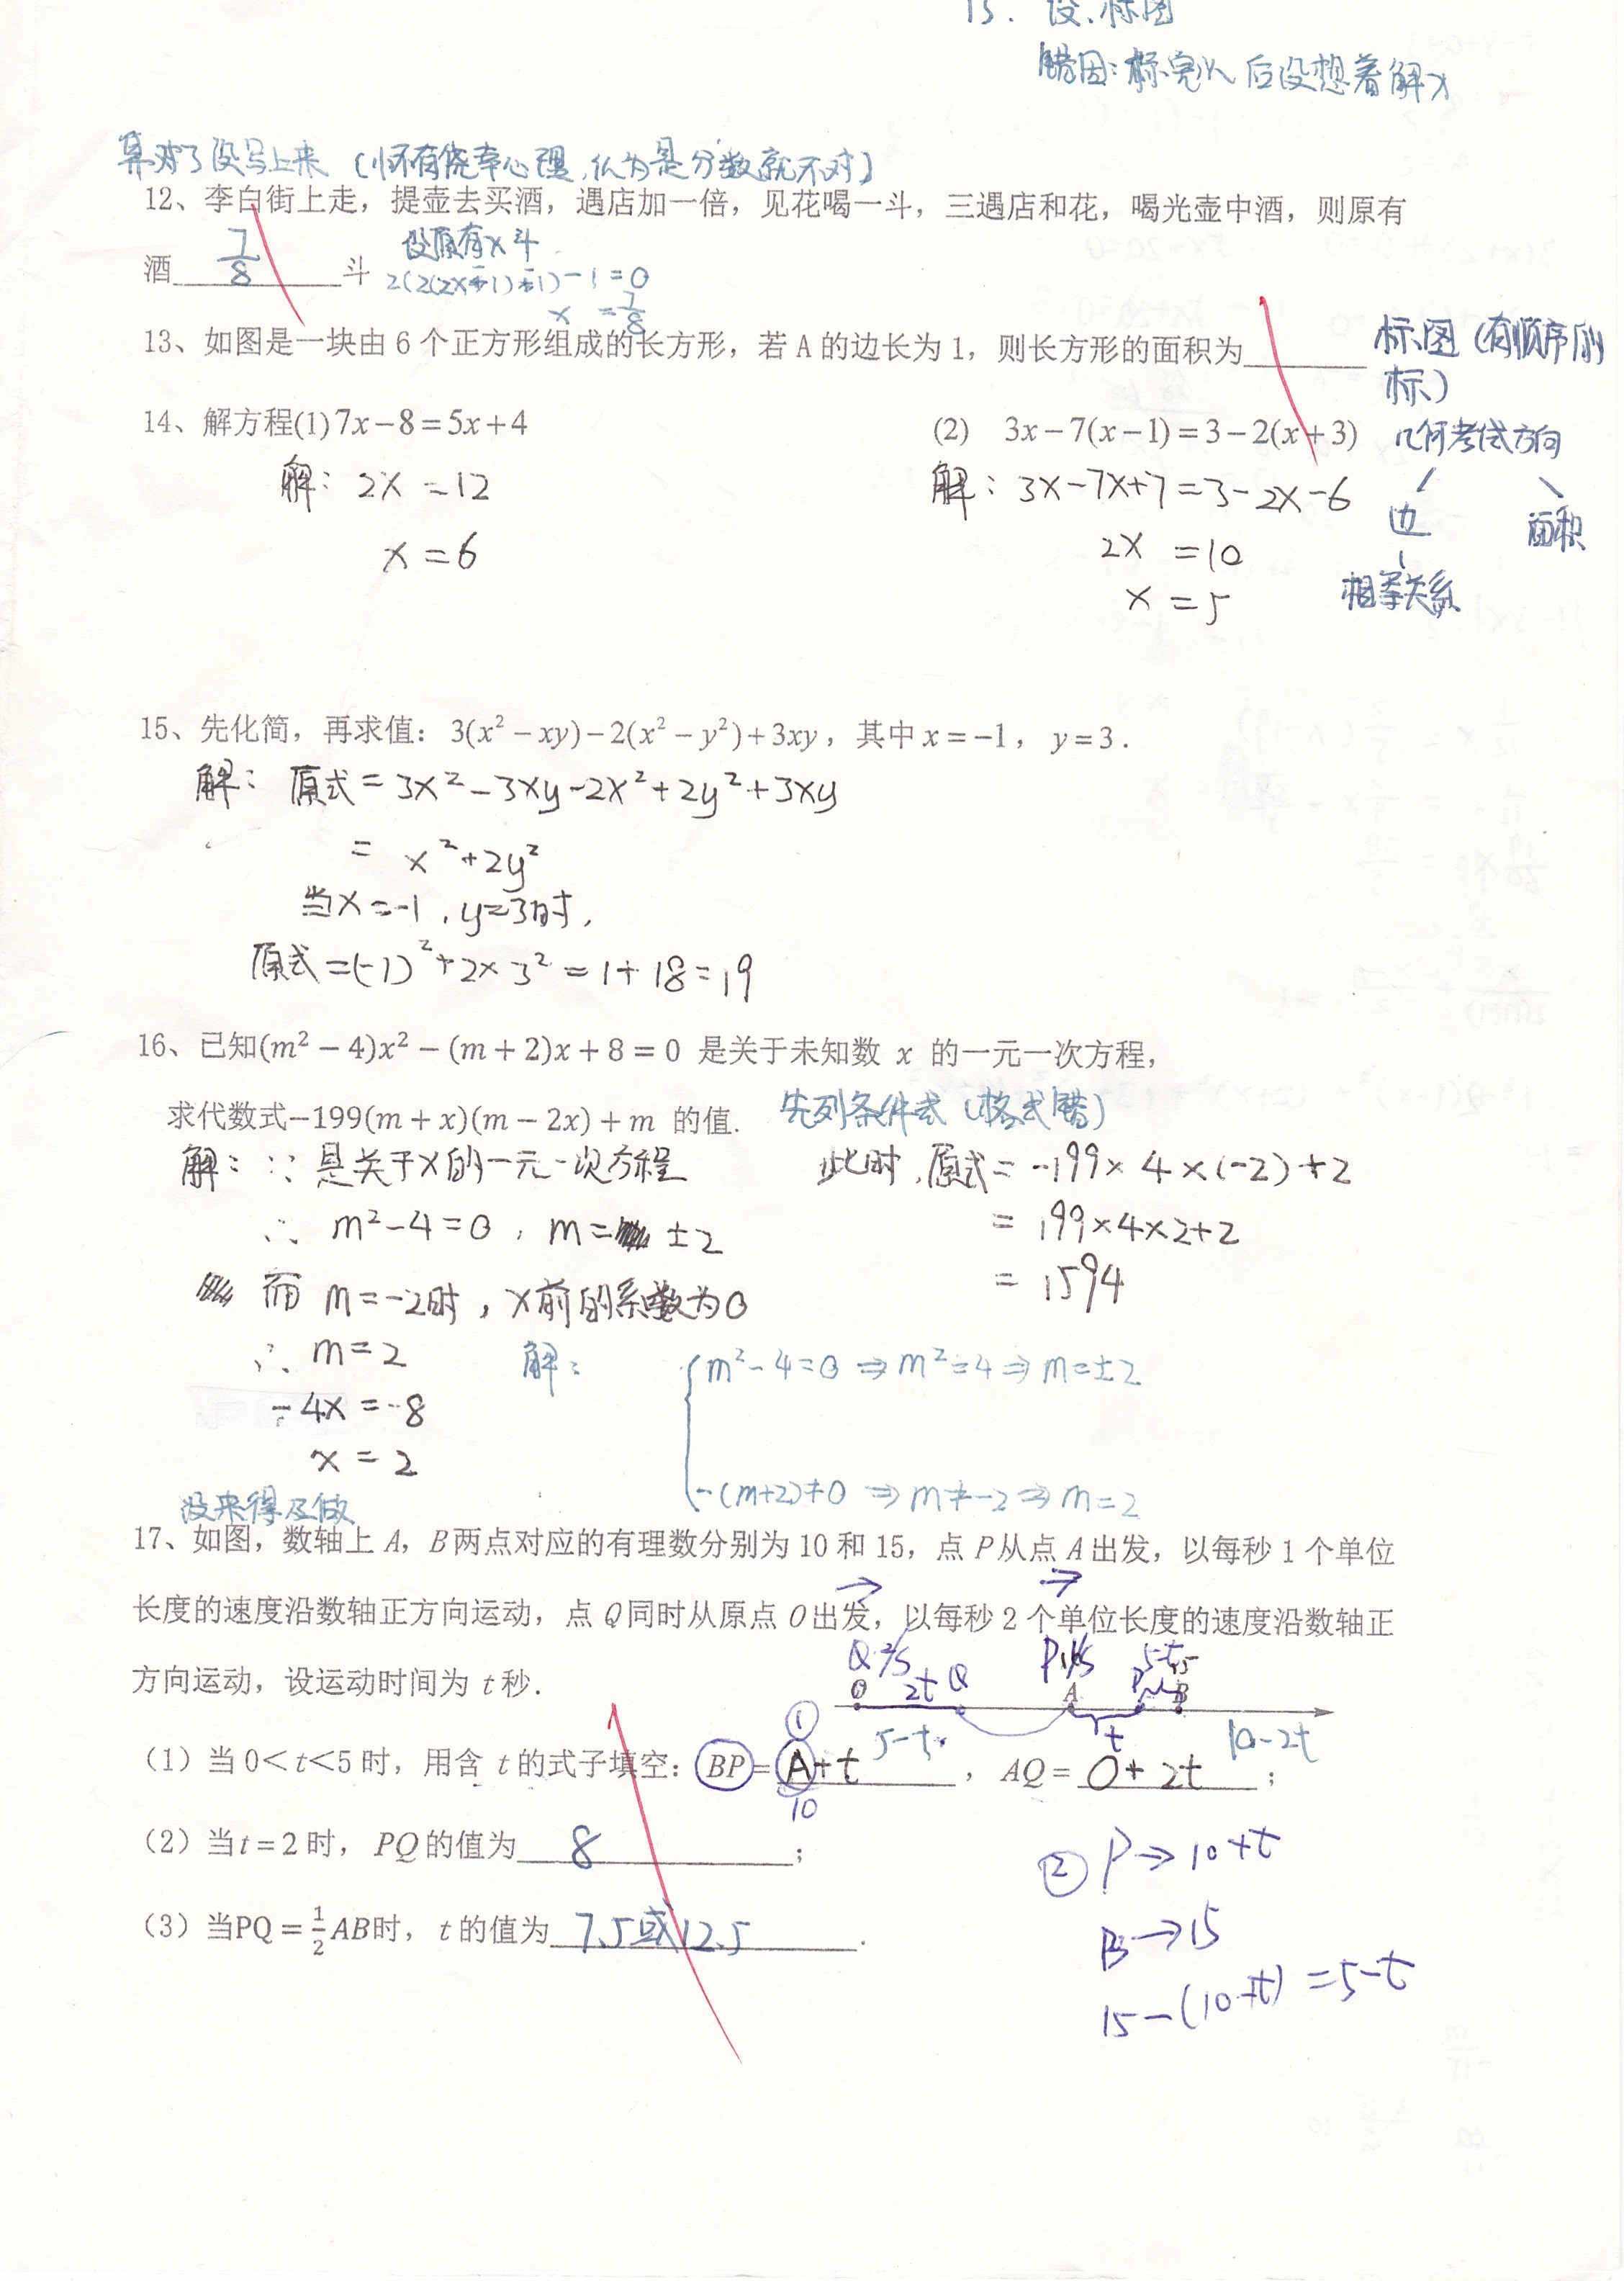 13. 设、标图
错因：标完后没想着解x
算对了没写上来（怀有侥幸心理，认为是分数就不对）
12、李白街上走，提壶去买酒，遇店加一倍，见花喝一斗，三遇店和花，喝光壶中酒，则原有
酒 7/8 斗 设原有x斗
2(2(2x-1)-1)-1=0
x = 7/8
13、如图是一块由 6 个正方形组成的长方形，若 A 的边长为 1，则长方形的面积为______
标图（有顺序的
标）
14、解方程(1) 7x-8=5x+4 (2) 3x-7(x-1)=3-2(x+3) 几何考试方向
解：2x=12 解：3x-7x+7=3-2x-6 边 面积
x=6 2x=10
x=5 相等关系
15、先化简，再求值：3(x²-xy)-2(x²-y²)+3xy，其中 x=-1，y=3.
解：原式=3x²-3xy-2x²+2y²+3xy
= x²+2y²
当x=-1，y=3时，
原式=(-1)²+2×3²=1+18=19
16、已知(m²-4)x²-(m+2)x+8=0 是关于未知数 x 的一元一次方程，
求代数式-199(m+x)(m-2x)+m 的值. 先列条件式（格式错）
解：∵是关于x的一元一次方程 此时，原式=-199×4×(-2)+2
∴ m²-4=0，m=±2 =199×4×2+2
而 m=-2时，x前的系数为0 =1594
∴ m=2 解： m²-4=0⇒m²=4⇒m=±2
-4x=-8
x=2 -(m+2)≠0⇒m≠-2⇒m=2
没来得及做
17、如图，数轴上 A，B 两点对应的有理数分别为 10 和 15，点 P 从点 A 出发，以每秒 1 个单位
长度的速度沿数轴正方向运动，点 Q 同时从原点 O 出发，以每秒 2 个单位长度的速度沿数轴正
方向运动，设运动时间为 t 秒.
Q 2/s 2t Q P 1/s 5-t 15
O A P B
① 5-t t 10-2t
（1）当 0<t<5 时，用含 t 的式子填空：BP= A+t ，AQ= 0+2t ；
10
（2）当 t=2 时，PQ 的值为 8 ； ② P→10+t
（3）当PQ=1/2AB时，t 的值为 7.5或12.5 . B→15
15-(10+t)=5-t